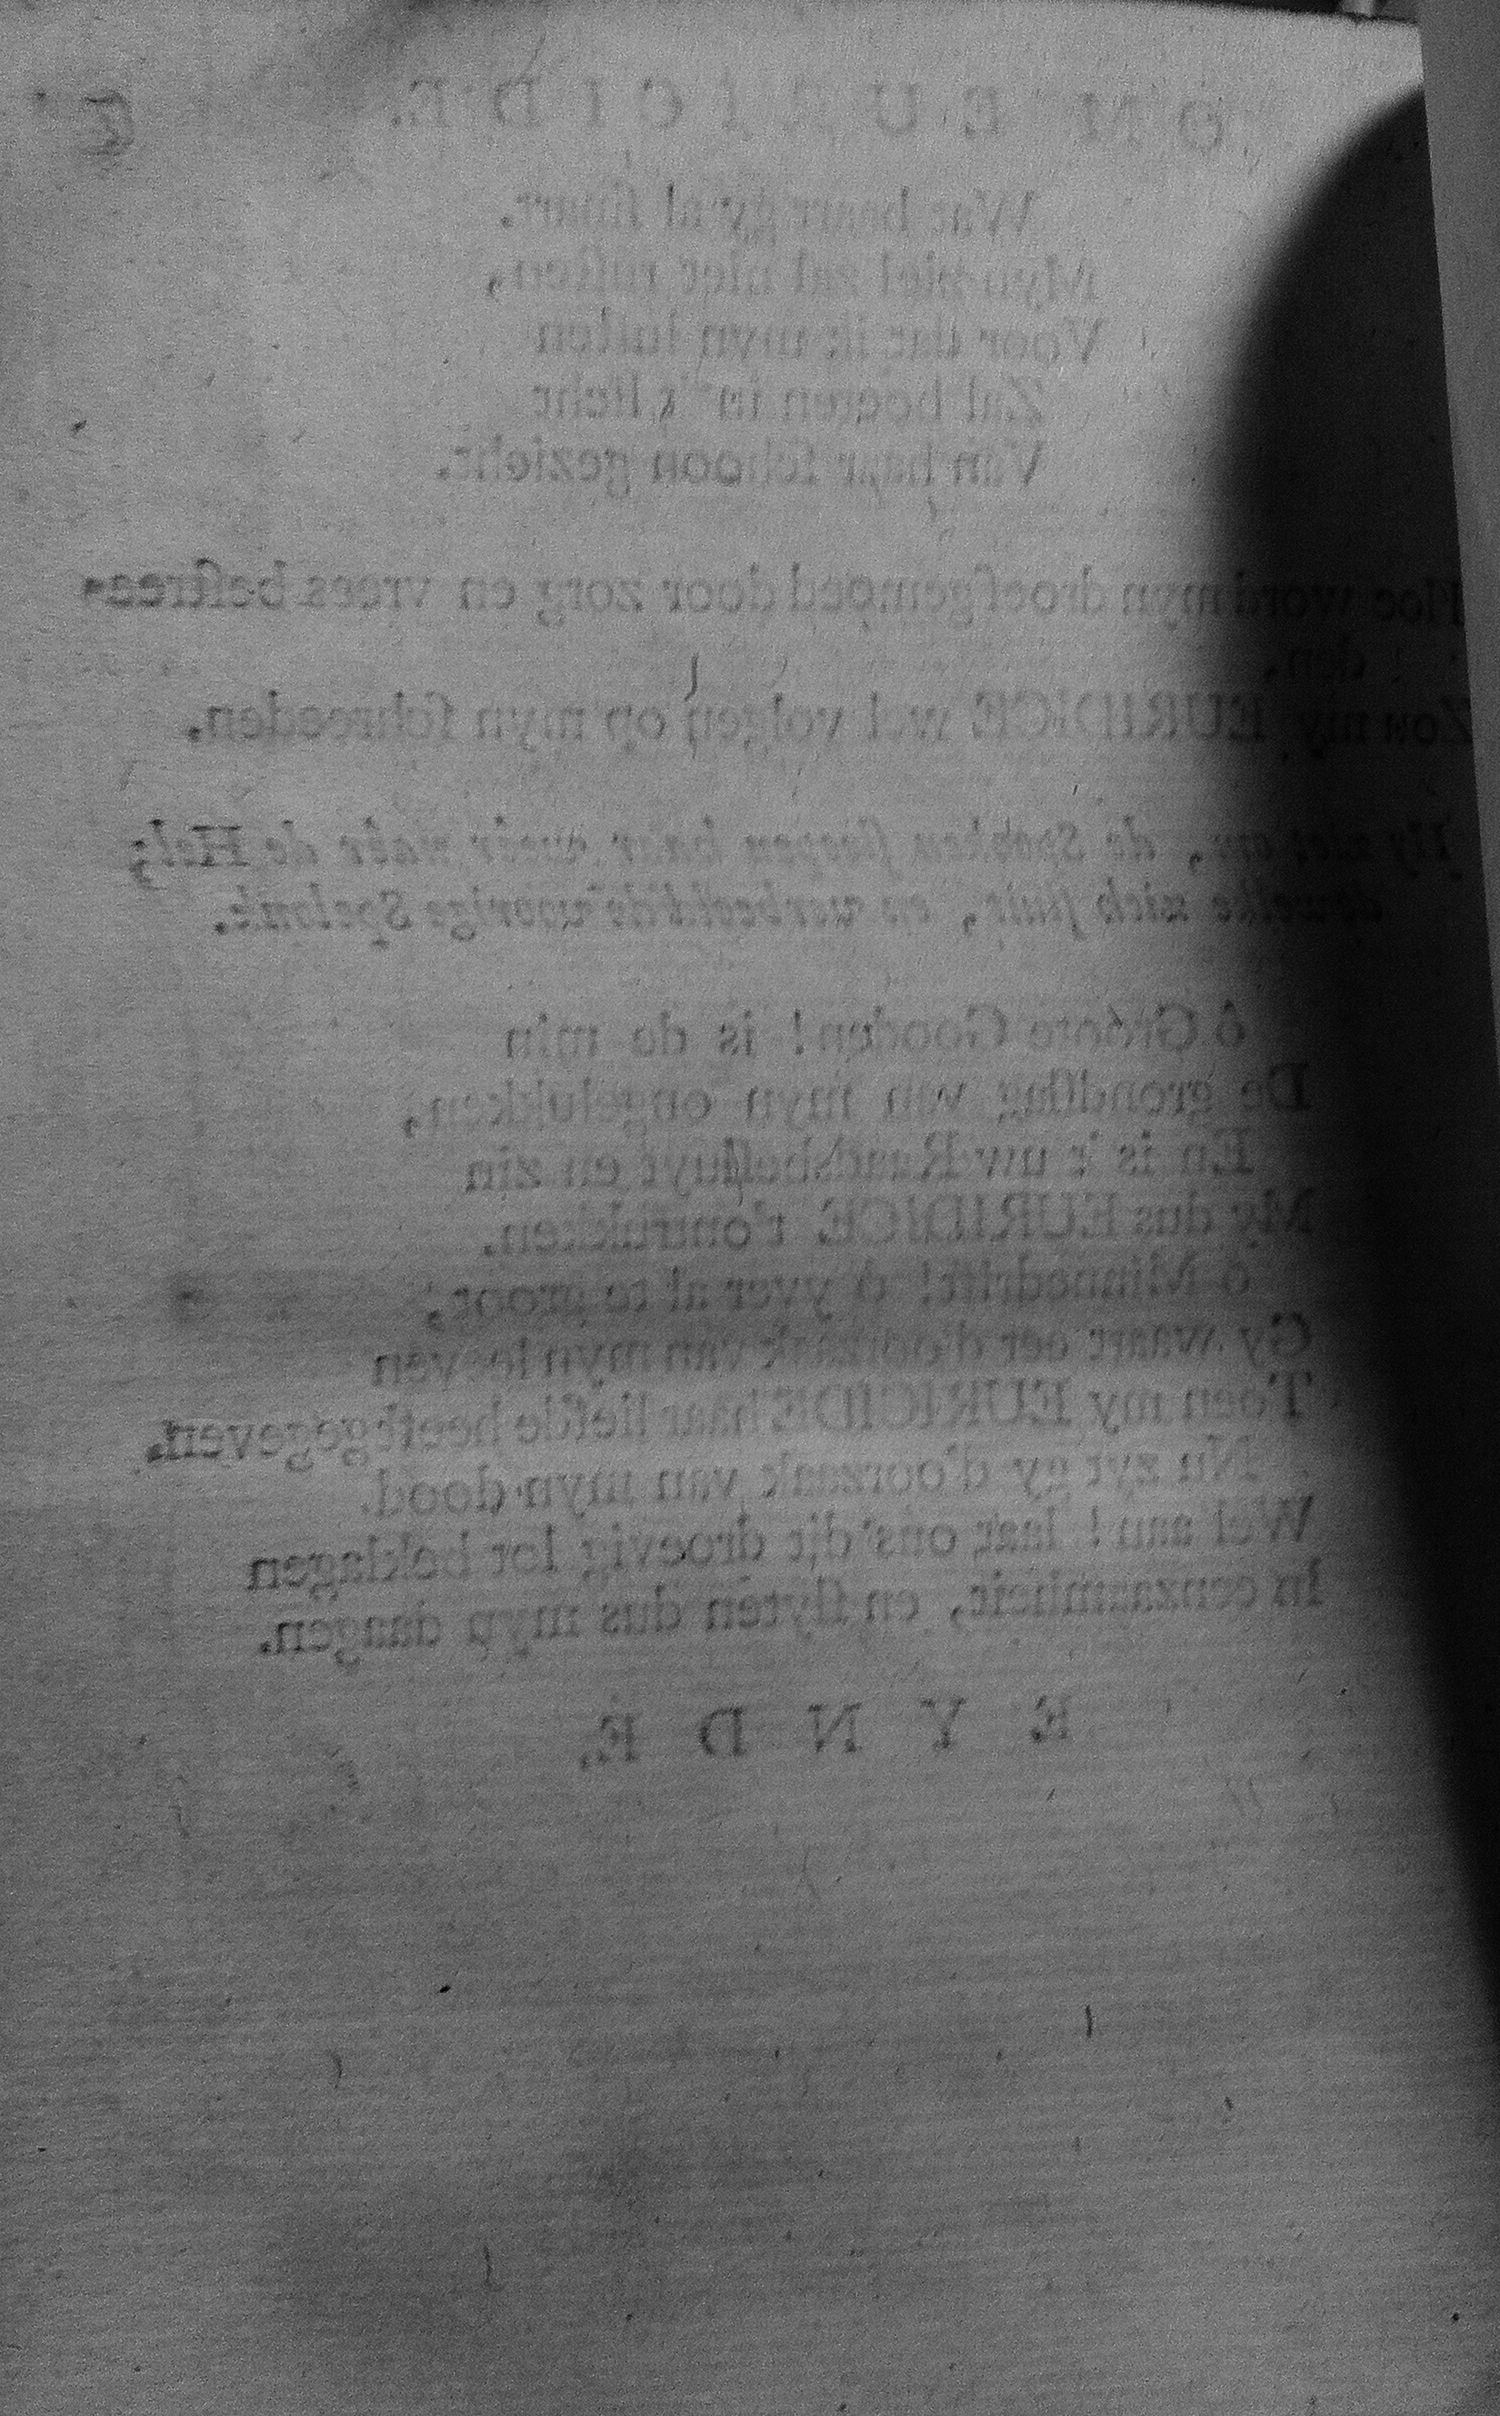 OM EURICIDE.
Wat baart gy al smart.
Myn ziel zal niet rusten,
Voor dat ik myn lusten
Zal boeten in 't licht
Van haar schoon gezicht.
Hoe word myn droef gemoed door zorg en vrees bestree-
den.
Zou my EURIDICE wel volgen op myn schreeden.
Hy ziet om, de Spooken sleepen haar weêr naêr de Hel;
dewelke zich sluit, en verbeeld de voorige Spelonk.
ô Groote Gooden! is de min
De grondslag van myn ongelukken,
En is 't uw Raadsbesluyt en zin
My dus EURIDICE t'ontrukken.
ô Minnedrift! ô yver al te groot,
Gy waart eer d'oorzaak van myn leeven
Toen my EURICIDE haar liefde heeft gegeeven,
Nu zyt gy d'oorzaak van myn dood.
Wel aan! laat ons dit droevig lot beklagen
In eenzaamheit, en slyten dus myn daagen.
EYNDE.